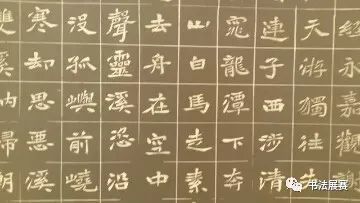 經永嘉觀謝
天游獨往
連子西涉清
龍潭下奔
山白馬走素
去舟在空中
聲靈溪恣沿
沒孤嶼前嶢
寒却思惡溪
雙溪納歸朝
书法展赛